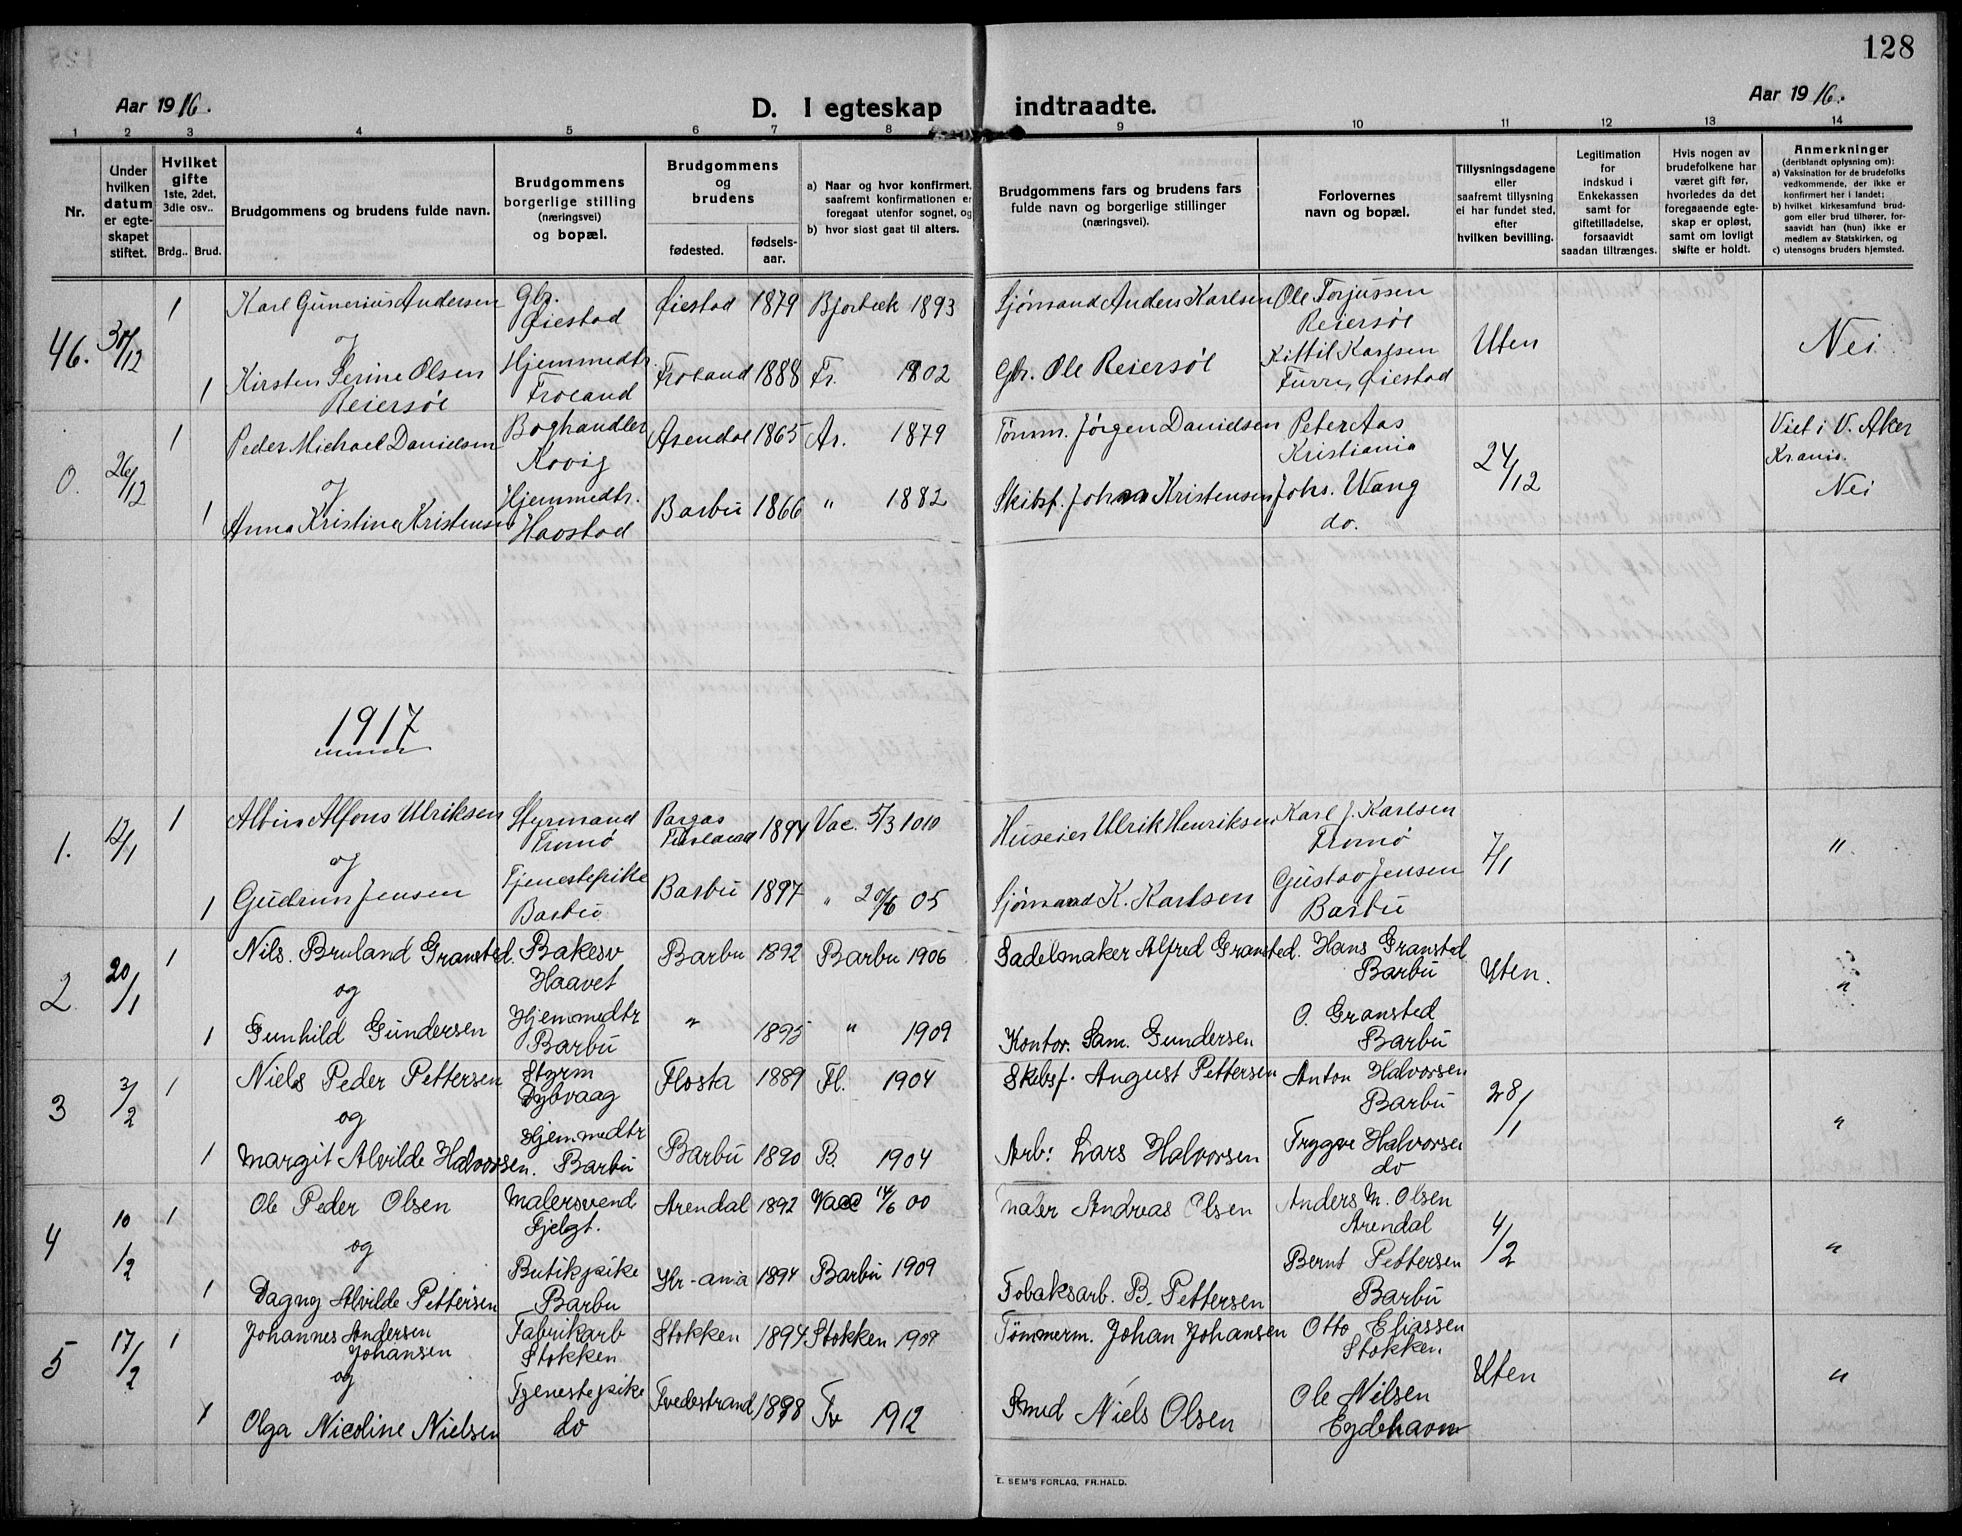 128
Aar 1916.
D. I egteskap indtraadte.
Aar 1916.
1 2 3 4 5 6 7 8 9 10 11 12 13 14
Nr.
Under hvilken datum er egteskapet stiftet.
Hvilket gifte 1ste, 2det, 3die osv..
Brdg.. Brud.
Brudgommens og brudens fulde navn.
Brudgommens borgerlige stilling (næringsvei) og bopæl.
Brudgommens og brudens
fødested. fødselsaar.
a) Naar og hvor konfirmert, saafremt konfirmationen er foregaat utenfor sognet, og
b) hvor sidst gaat til alters.
Brudgommens fars og brudens fars fulde navn og borgerlige stillinger (næringsvei).
Forlovernes navn og bopæl.
Tillysningsdagene eller saafremt tillysning ei har fundet sted, efter hvilken bevilling.
Legitimation for indskud i Enkekassen samt for giftetilladelse, forsaavidt saadan tiltrænges.
Hvis nogen av brudefolkene har været gift før, hvorledes da det foregaaende egteskap er opløst, samt om lovligt skifte er holdt.
Anmerkninger (deriblandt oplysning om):
a) Vaksination for de brudefolks vedkommende, der ikke er konfirmert her i landet;
b) hvilket kirkesamfund brudgom eller brud tilhører, forsaavidt han (hun) ikke er medlem av Statskirken, og
c) utensogns bruders hjemsted.
46. 30/12 1 Karl Gunerius Andersen Gbr. Øiestad Øiestad 1879 Bjorbæk 1893 Sjømand Anders Karlsen Ole Torjussen Reiersøl Uten Nei
og
1 Kirsten Serine Olsen Reiersøl Hjemmedtr. Froland Froland 1888 Fr. 1902 Gbr. Ole Reiersøl Kittil Karlsen Furre, Øiestad
0. 26/12 1 Peder Michael Danielsen Boghandler Arendal 1865 Ar. 1879 Tømm. Jørgen Danielsen Peter Aas Kristiania 24/12 Viet i V. Aker Krania. Nei
og
1 Anna Kristine Kristensen Hjemmedtr. Barbu 1866 " 1882 Skibsf. Johan Kristensen Johs. Wang do.
1917
1. 12/1 1 Albin Alfons Ulriksen Styrmand Tromø Pargas Finland 1894 Vac. 5/3 1010 Huseier Ulrik Henriksen Karl J. Karlsen Tromø 7/1 "
og
1 Gudrun Jensen Tjenestepike Barbu Barbu 1897 " 20/6 05 Sjømand K. Karlsen Gustav Jensen Barbu
2 20/1 1 Nils. Bruland Gransted. Bakesv Haavet Barbu 1892 Barbu 1906 Sadelmaker Alfred Gransted. Hans Gransted Barbu Uten. "
og
1 Gunhild Gundersen Hjemmedtr Barbu " 1895 " 1909 Kontor. Sam. Gundersen O. Gransted Barbu
3 3/2 1 Niels Peder Pettersen Styrm Dybvaag Flosta 1889 Fl. 1904 Skibsf. August Pettersen Anton Halvorsen Barbu 28/1 "
og
1 Margit Alvilde Halvorsen. Hjemmedtr Barbu Barbu 1890 B. 1904 Arb: Lars Halvorsen Trygve Halvorsen do
4 10/2 1 Ole Peder Olsen Malersvend Fjelgt. Arendal 1892 Vacc 14/6 00 Maler Andreas Olsen Anders M. Olsen Arendal 4/2 "
og
1 Dagny Alvilde Pettersen Butikpike Barbu Kr-ania 1894 Barbu 1909 Tobaksarb. B. Pettersen Bernt Pettersen Barbu
5 17/2 1 Johannes Andersen Johansen Fabrikarb Stokken Stokken 1894. Stokken 1909 Tømmerm. Johan Johansen Otto Eliassen Stokken Uten "
og
1 Olga Nicoline Nielsen Tjenestepike do Tvedestrand 1898 Tv 1912 Smed Niels Olsen Ole Nilsen Eydehavn
E. SEM'S FORLAG, FR.HALD.